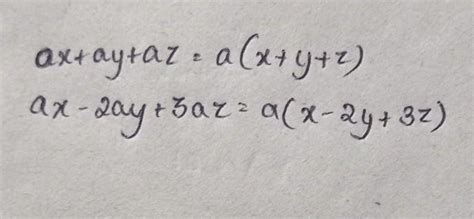 ax+ay+az = a(x+y+z)
ax-2ay+3az = a(x-2y+3z)